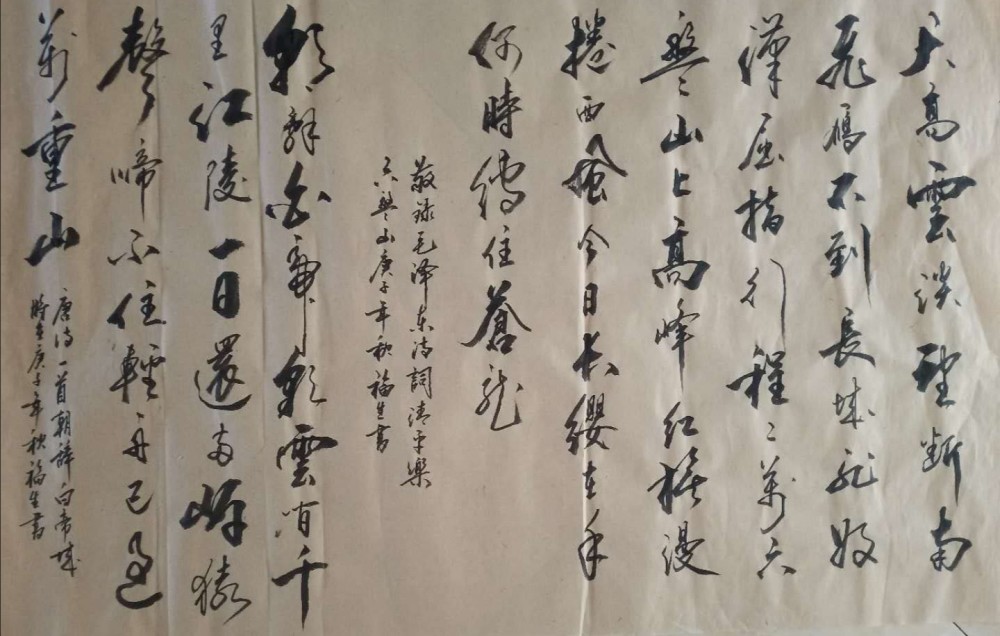 天高雲淡望斷南
飛鴈不到長城非好
漢屈指行程二萬六
盤山上高峰红旗漫
捲西風今日長纓在手
何時縛住蒼龍
敬録毛泽东诗詞清平樂
六盤山庚子年秋福生書
朝辭白帝彩雲间千
里江陵一日還两岸猿
聲啼不住輕舟已過
萬重山
唐诗一首朝辞白帝城
時在庚子年秋福生書